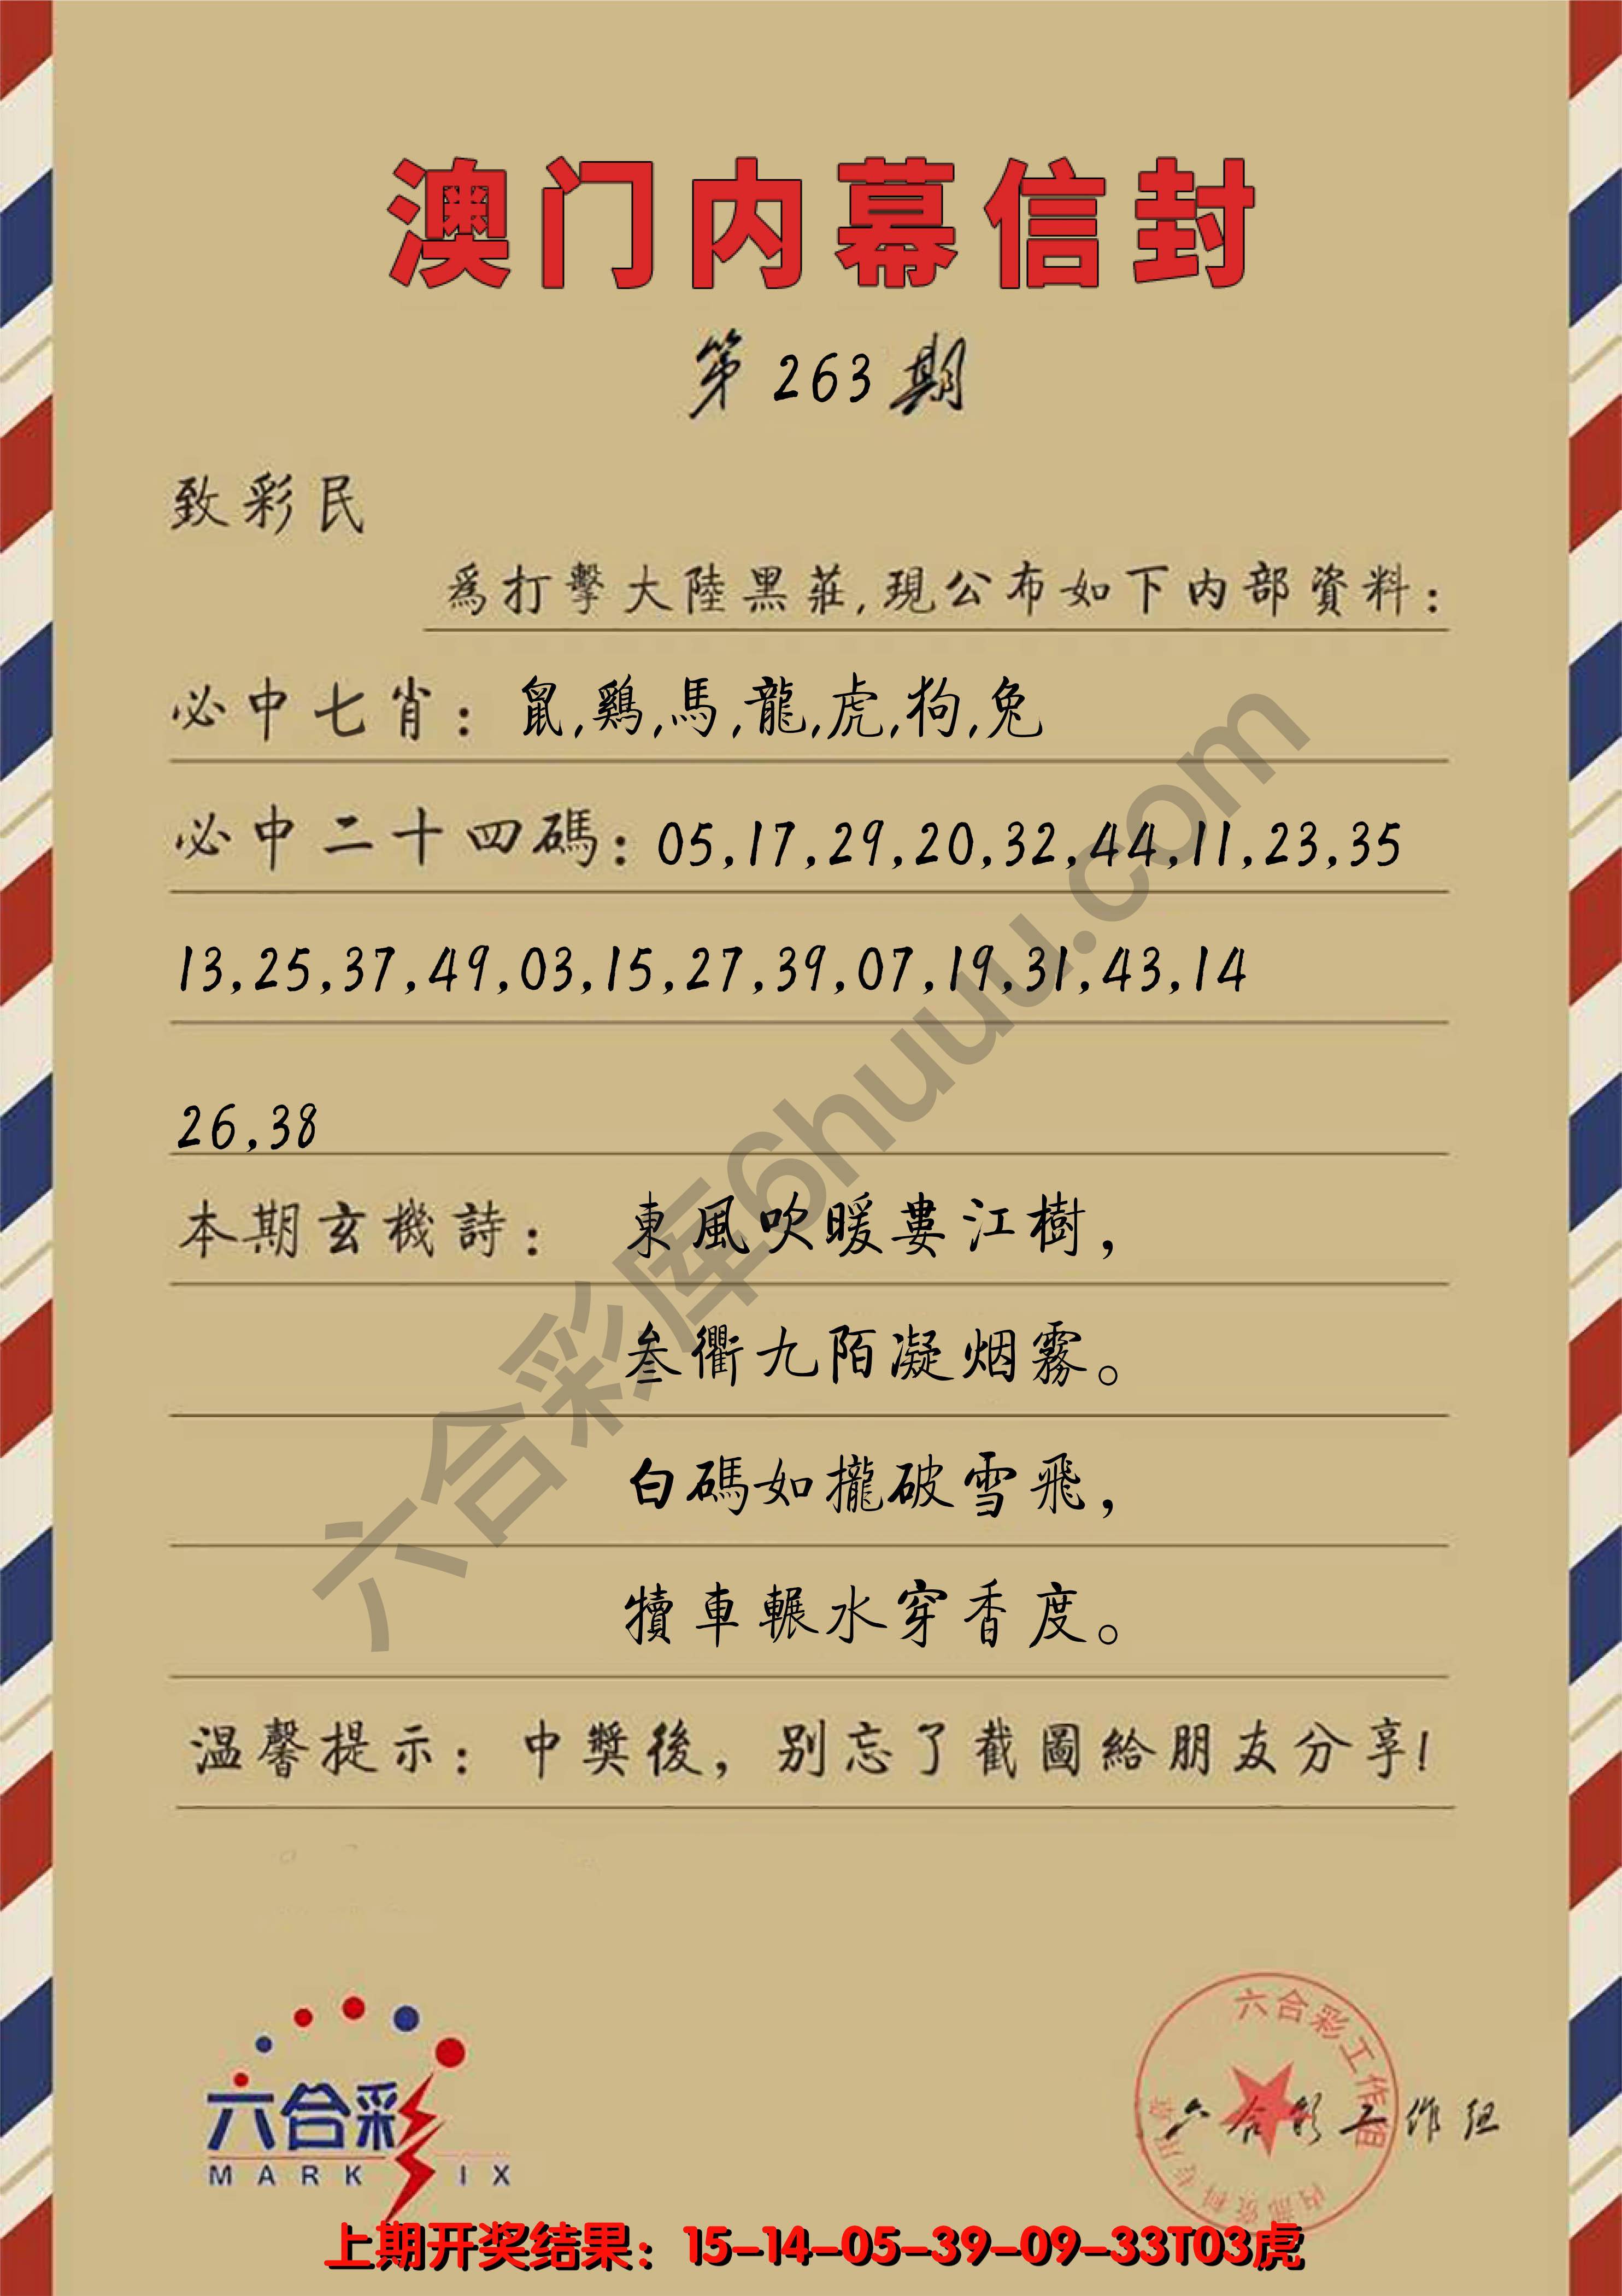 澳门内幕信封
第263期
致彩民
爲打擊大陸黑莊,現公布如下内部資料:
必中七肖: 鼠,鷄,馬,龍,虎,狗,兔
必中二十四碼: 05,17,29,20,32,44,11,23,35
13,25,37,49,03,15,27,39,07,19,31,43,14
26,38
本期玄機詩: 東風吹暖婁江樹,
叁衢九陌凝烟霧。
白碼如攏破雪飛,
犢車輾水穿香度。
温馨提示: 中獎後, 别忘了截圖給朋友分享!
六合彩库6huuu.com
六合彩
MARK SIX
六合彩工作组
内部资料专用章
六合彩工作组
上期开奖结果: 15-14-05-39-09-33T03虎